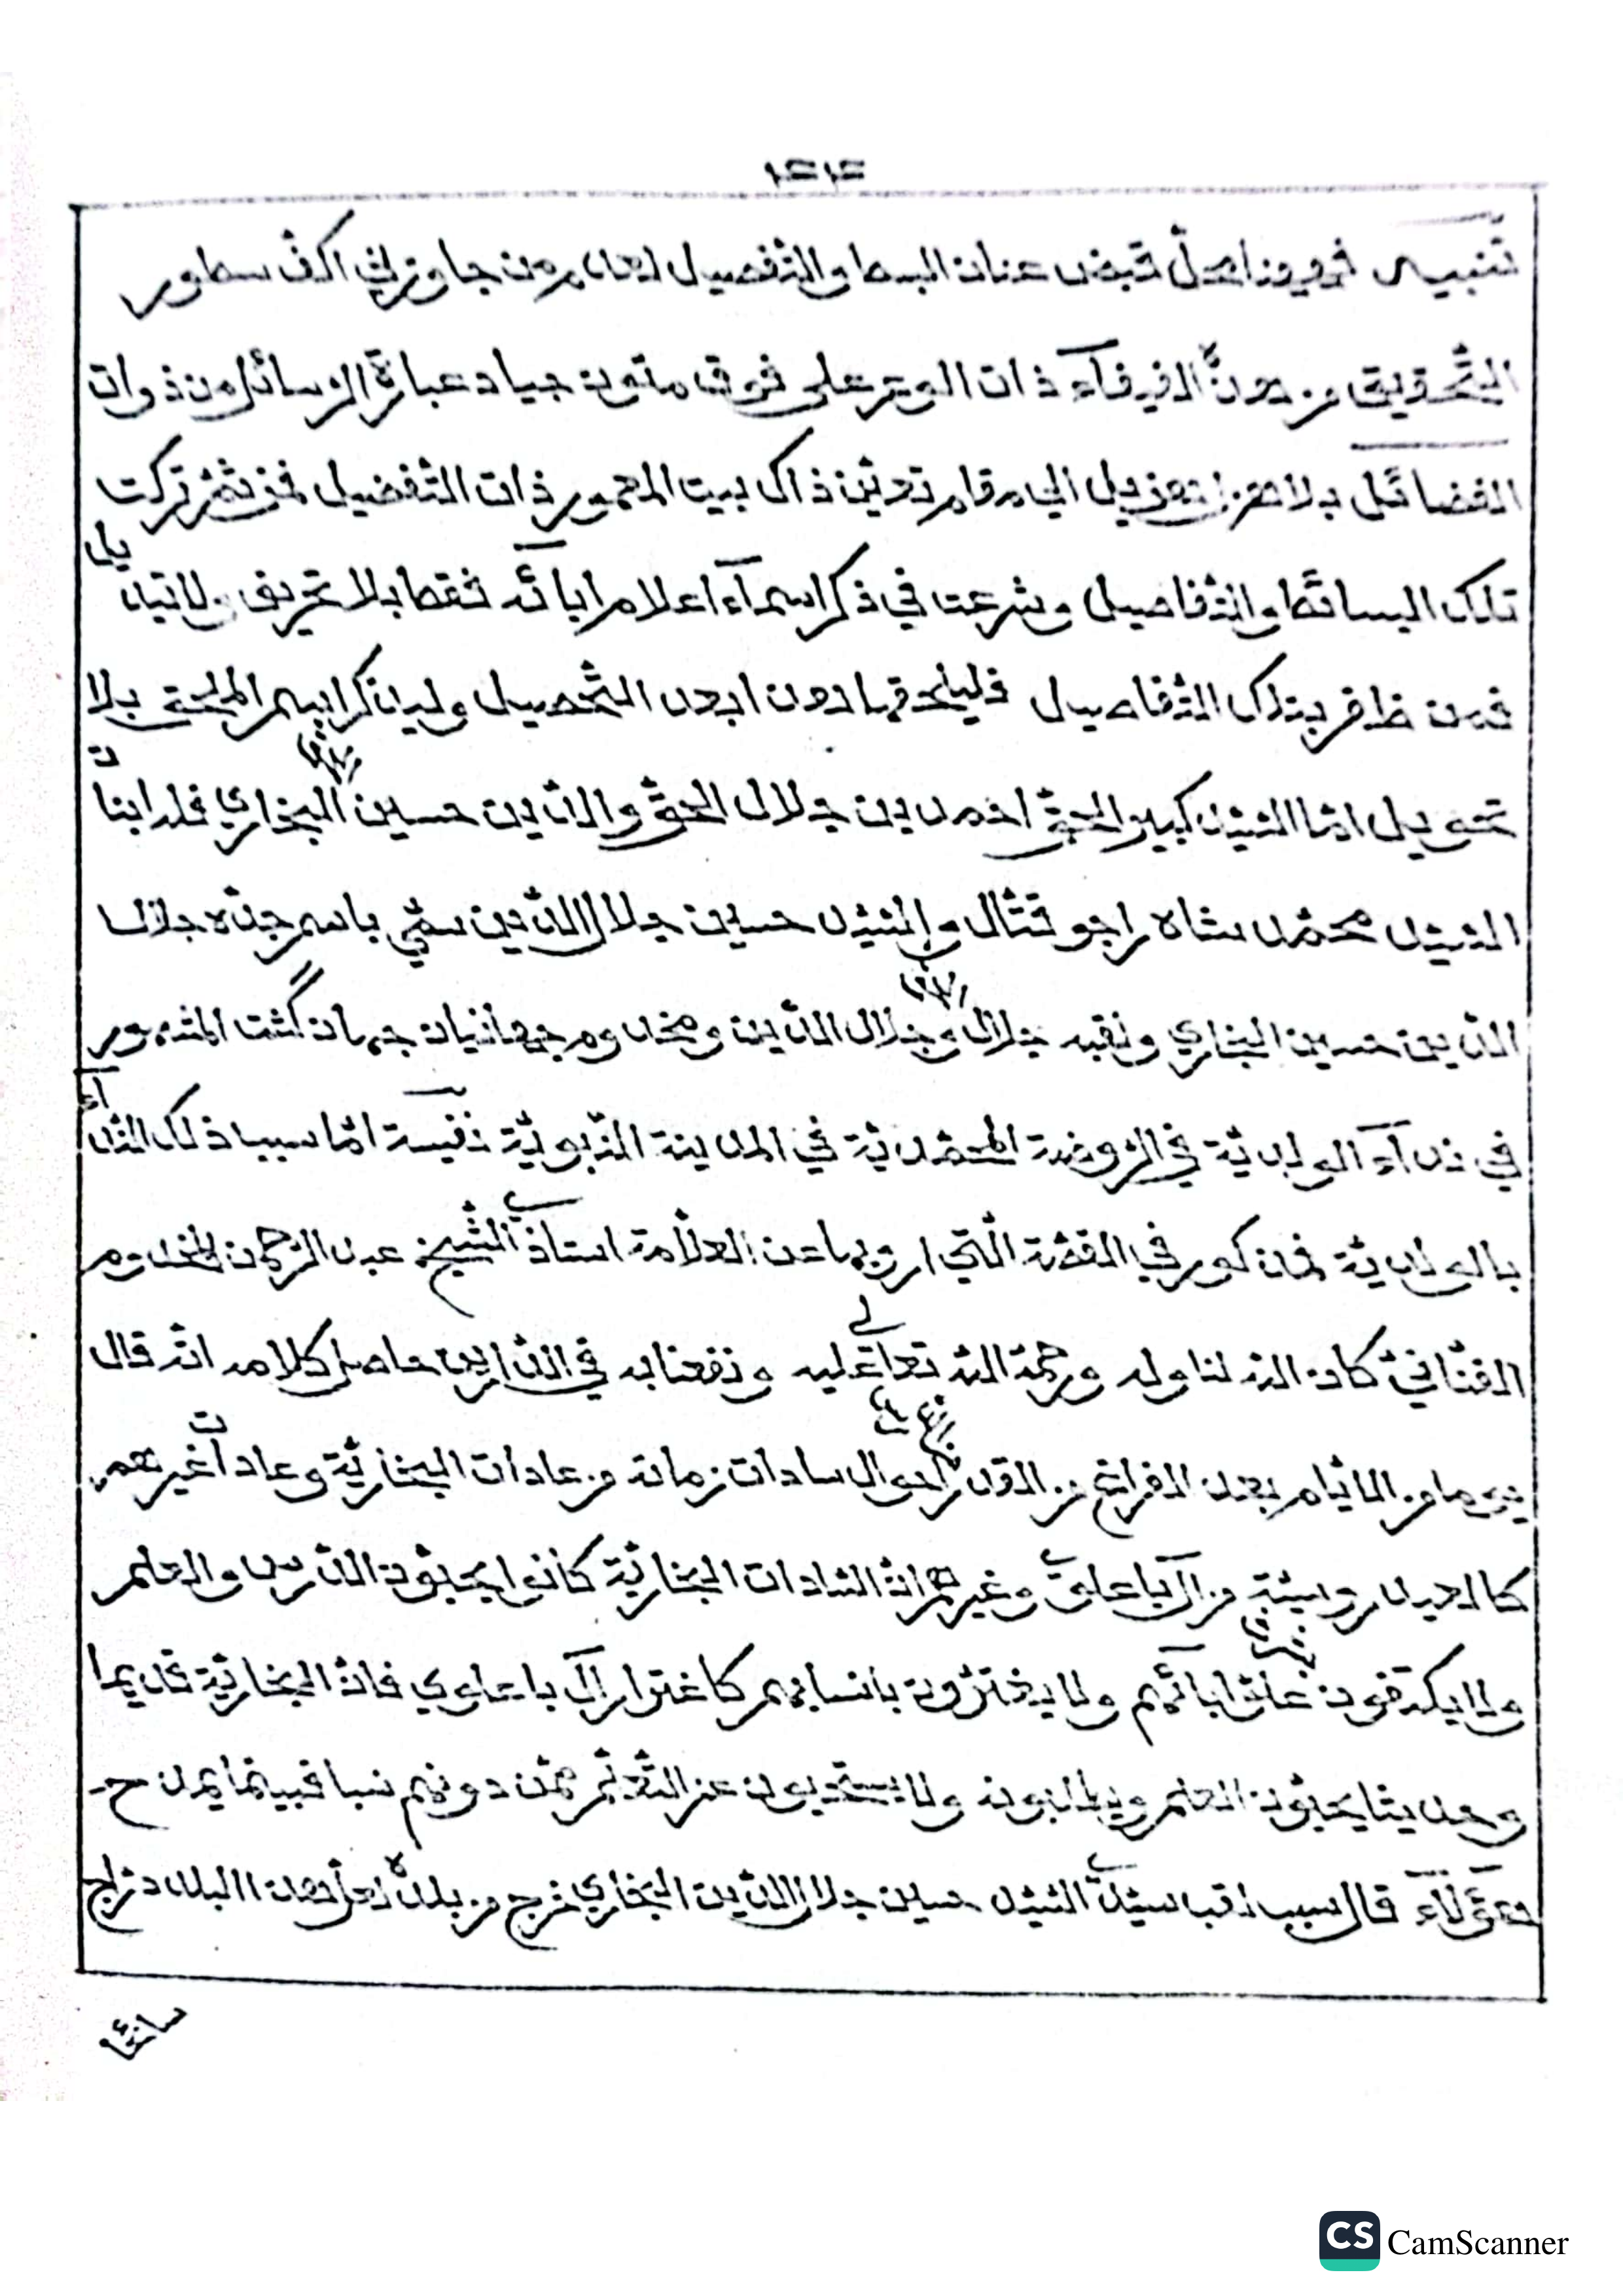 تنبيه فههنا محلّ قبض عنان البسط والتّفصيل لعدم من جاوز لي اكفّ سطور
التّحقيق من هذه الفيفآء ذات الوتر على فوق متون جياد عبارة الرسائل من ذوات
الفضائل بلا هزل الى مقام تدين ذاك بيت المعمور ذات التّفضيل فمن ثمّ تركت
تلك البسائط والتّفاصيل وشرعت في ذكر اسمآء اعلام ابائه فقط بلا تحريف ولا تبديل
فمن ظفر بتلك التّفاصيل فليلحقها دون ابعد التّحصيل وليذكر اسم الملحق بلا
تحويل امّا السّيّد كبير الحقّ احمد بن جلال الحقّ والدّين حسين البخاري فله ابنان
السّيّد محمّد شاه راجو قتّال والسّيّد حسين جلال الدّين سمّي باسم جدّه جلال
الدّين حسين البخاري ولقبه جلال وجلال الدّين ومخدوم جهانيان جهان گشت المشهور
في ندآء الولديّة في الرّوضة المحمّديّة في المدينة النّبويّة نفيسة امّا سبب ذلك النّدآء
بالولديّة فمذكور في القصّة الّتي ارويها عن العلّامة استاذي الشّيخ عبد الرّحمن المخدوم
الفنّاني كان الله لنا وله ورحمة الله تعالى عليه ونفعنا به في الدّارين حاصل كلامه انّه قال
يوما من الايّام بعد الفراغ من الدّرس احوال سادات زمانه من عادات البخاريّة وعادات غيرهم
كالعيدروسيّة من آل باعلوي وغيرهم انّ السّادات البخاريّة كانوا يحبّون الدّرس والعلم
ولا يكتفون على ابائهم ولا يغترّون بانسابهم كاغترار آل باعلوي فانّ البخاريّة قديما
وحديثا يحبّون العلم ويطلبونه ولا يستحيون عن التّعلّم ممّن دونهم نسبا فبينما يمدح
هؤلآء قال سبب لقب سيّدي السّيّد حسين جلال الدّين البخاري خرج من بلده لعلّ هذا البلد